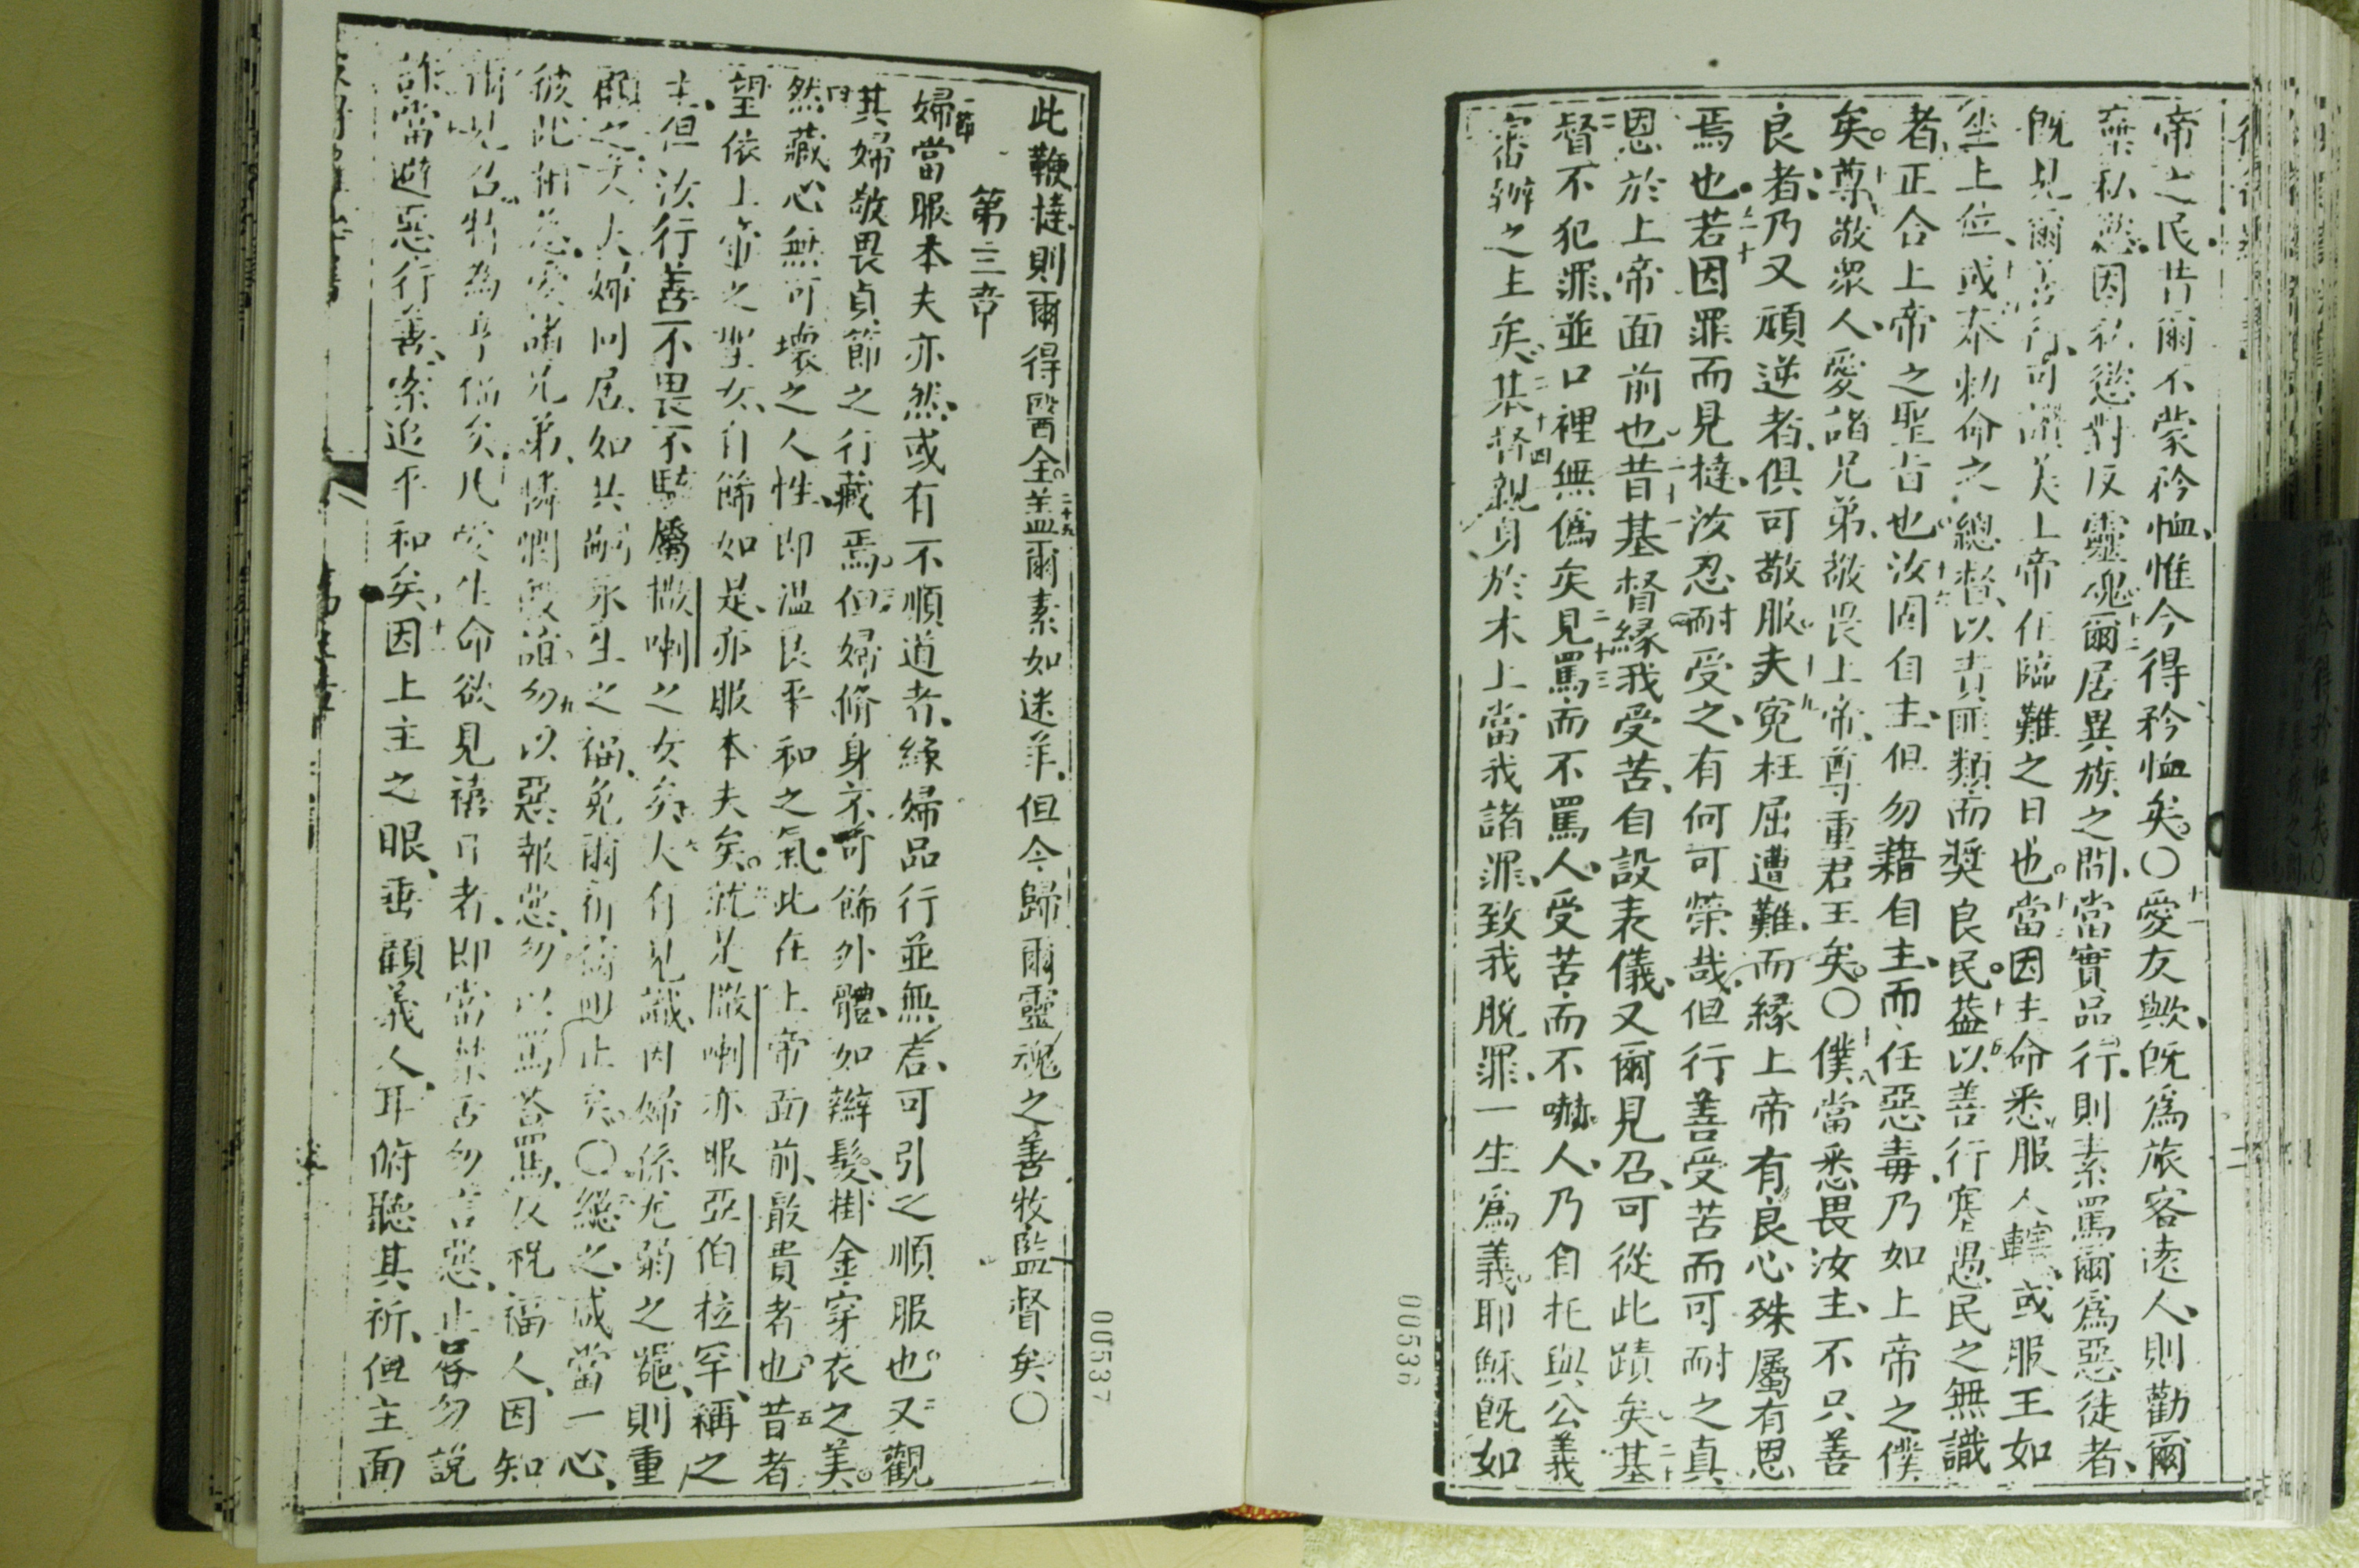 帝之民昔爾不蒙矜恤、惟今得矜恤矣。〇十一愛友歟、旣爲旅客遠人、則勸爾
棄私慾、因私慾對反靈魂十二爾居異族之間、當實品行、則素罵爾爲惡徒者、
旣見爾善行、可讚美上帝在臨難之日也。當因主命悉服人轄、或服王如
坐上位、或奉勅命之總督、以責匪類而奬良民。蓋以善行塞愚民之無識
者、正合上帝之聖旨也汝固自主、但勿藉自主、而任惡毒乃如上帝之僕
矣。尊敬衆人、愛諸兄弟、敬畏上帝、尊重君王矣。〇十八僕當悉畏汝主、不只善
良者、乃又頑逆者、俱可敬服十九夫寃枉屈遭難、而緣上帝有良心殊屬有恩
焉也。二十若因罪而見撻、汝忍耐受之、有何可榮哉、但行善受苦而可耐之真
恩於上帝面前也二十一昔基督緣我受苦、自設表儀、又爾見召、可從此蹟矣基
督不犯罪、並口裡無僞矣二十三見罵而不罵人、受苦而不嚇人、乃自托與公義
審辦之主矣。二十四基督親身於木上當我諸罪、致我脫罪、一生爲義。耶穌旣如
00536
此鞭撻、則爾得醫全。二十五蓋爾素如迷羊、但今歸爾靈魂之善牧監督矣〇
第三章
一節婦當服本夫亦然、或有不順道者、緣婦品行並無言、可引之順服也。二又觀
其婦敬畏貞節之行藏焉。三但婦脩身不可飾外體、如辮髮、掛金、穿衣之美。
四然藏心無可壞之人性、即溫良平和之氣此在上帝面前、最貴者也五昔者
望依上帝之聖女、自飾如是、亦服本夫矣。就是撒喇亦服亞伯拉罕、稱之
主、但汝行善不畏不駭屬撒喇之女矣夫有見識、因婦係尤弱之器、則重
顧之矣夫婦同居、如共嗣永生之福、免爾祈禱阻止矣。〇總之、咸當一心、
彼此相慈、愛諸兄弟、憐憫殷誼九勿以惡報惡、勿以罵荅罵、反祝福人、因知
爾見召特為享福矣、凡愛生命欲見禧日者、即當禁舌勿言惡、止唇勿說
詐當避惡行善、索追平和矣因上主之眼、垂顧義人、耳俯聽其祈、但主面
00537